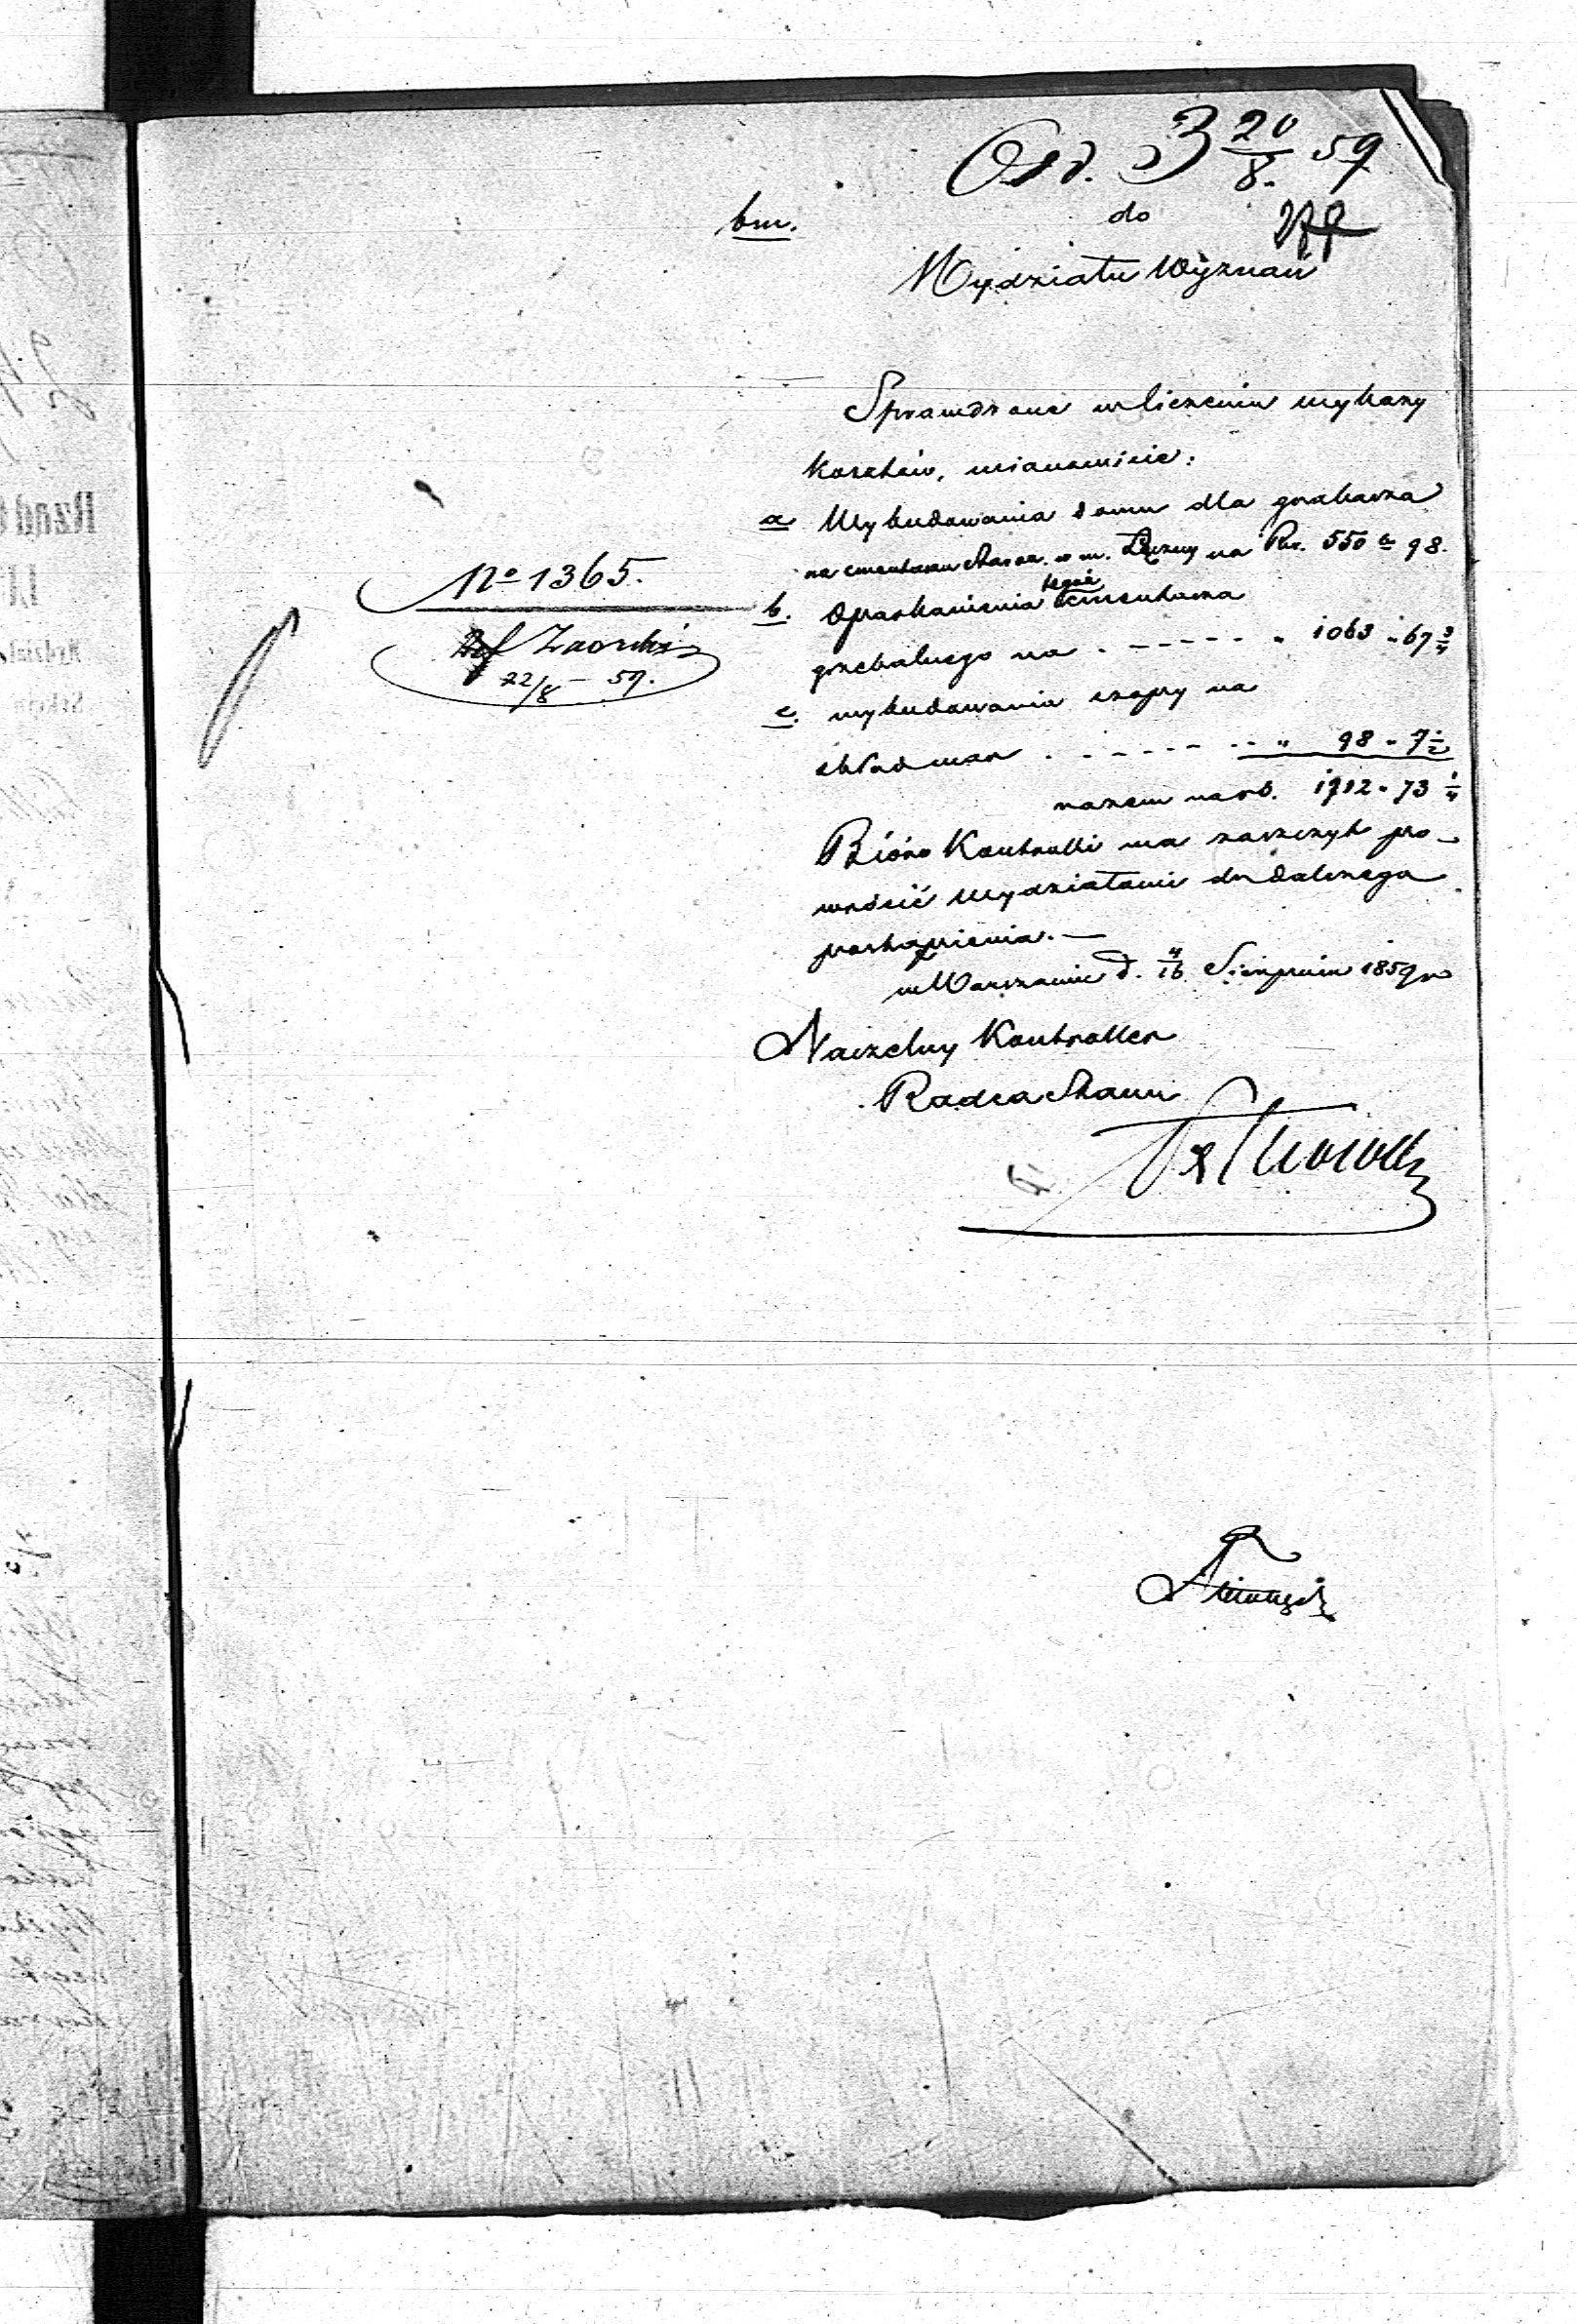 Odd. 3 20/8. 59
bm.
do
Wydziału Wyznań
Sprawdzone w liczeniu wykazy
kosztów, mianowicie:
a Wybudowania domu dla grabarza
na cmentarzu w m. na Rs. 550 k 98.
b. Oparkanienia tegoż cmentarza
grzebalnego na . - - - - - " 1063 " 67 3/4
c. wybudowania szopy na
skład mar . - - - - - " 98 " 7 1/2
razem na rs. 1712 " 73 1/4
Bióro Kontrolli ma zaszczyt po-
wrócić Wydziałowi do dalszego
postąpienia. —
w Warszawie d. 4/16 Sierpnia 1859 r.
Naczelny Kontroller
Radca
No 1365.
Ref Zaorski
22/8 - 59.